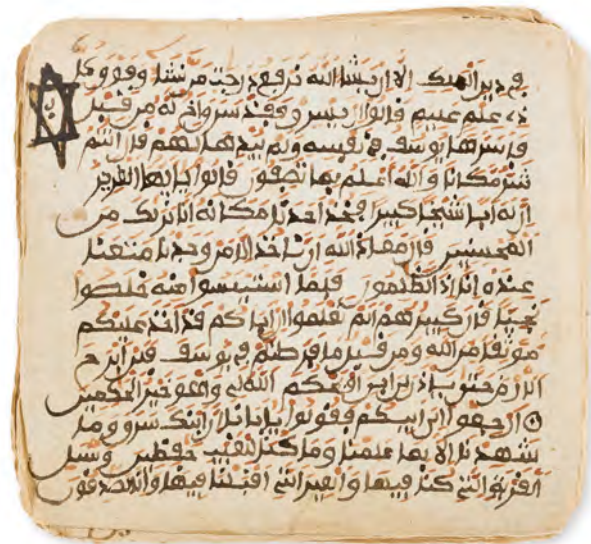 في دين الملك الا ان يشا الله نرفع درجت من نشا وفوق كل
ذي علم عليم قالوا ان يسرق فقد سرق اخ له من قبل
فاسرها يوسف في نفسه ولم يبدها لهم قال انتم
شر مكانا والله اعلم بما تصفون قالوا يايها العزيز
ان له ابا شيخا كبيرا فخذ احدنا مكانه انا نريك من
المحسنين قال معاذ الله ان ناخذ الا من وجدنا متعنا
عنده انا اذا لظلمون فلما استيئسوا منه خلصوا
نجيا قال كبيرهم الم تعلموا ان اباكم قد اخذ عليكم
موثقا من الله ومن قبل ما فرطتم في يوسف فلن ابرح
الارض حتى ياذن لي ابي او يحكم الله لي وهو خير الحكمين
ارجعوا الى ابيكم فقولوا يابانا ان ابنك سرق وما
شهدنا الا بما علمنا وما كنا للغيب حفظين وسئل
القرية التي كنا فيها والعير التي اقبلنا فيها وانا لصدقون